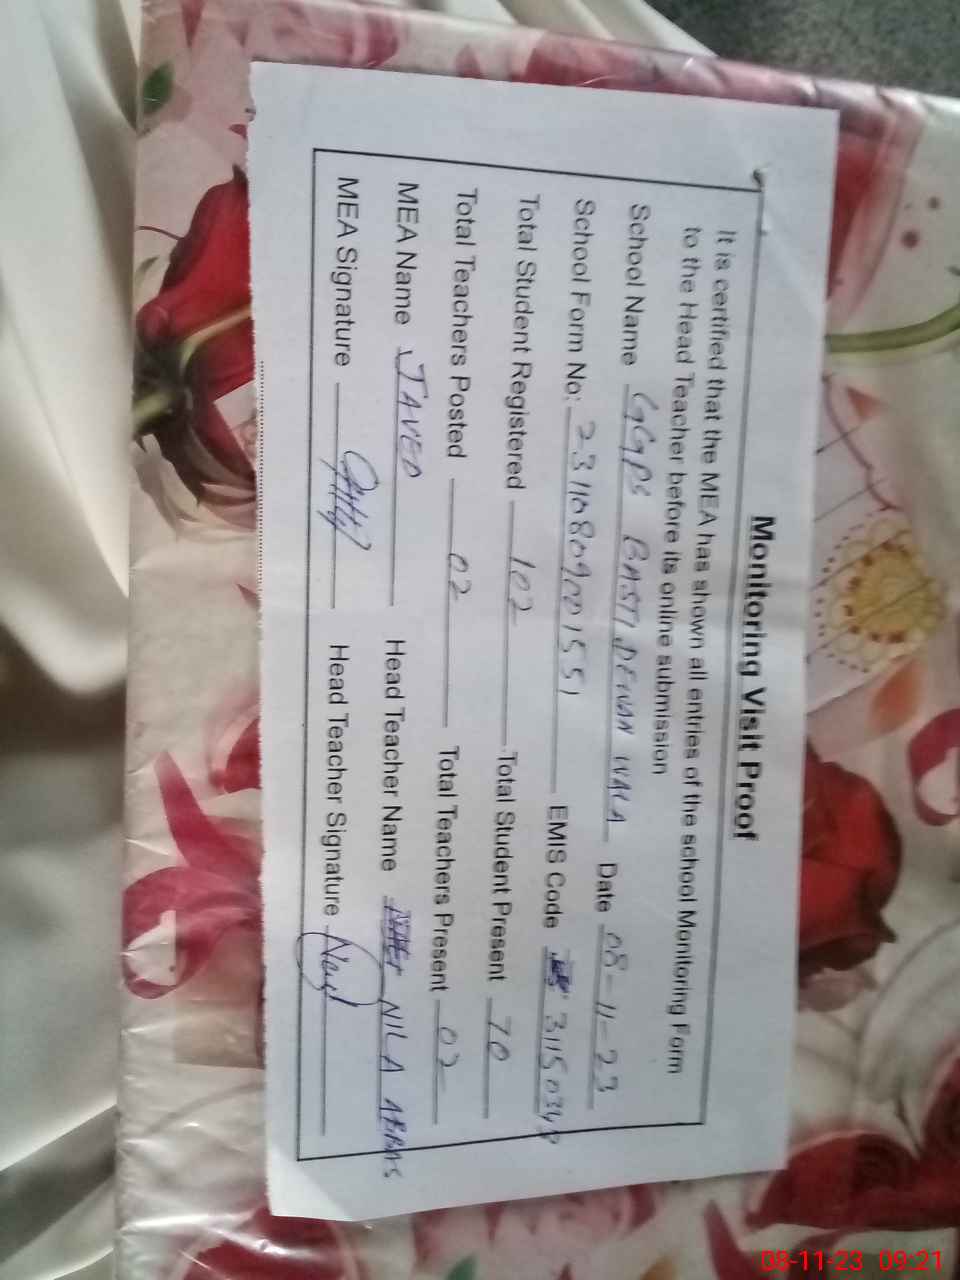 Monitoring Visit Proof
It is certified that the MEA has shown all entries of the school Monitoring Form
to the Head Teacher before its online submission
School Name GGPS BASTI DEWAN WALA Date 08-11-23
School Form No: EMIS Code
Total Student Registered 102 Total Student Present 70
Total Teachers Posted 02 Total Teachers Present 02
MEA Name JAVED Head Teacher Name NILA ABBAS
MEA Signature Head Teacher Signature
08-11-23 09:21